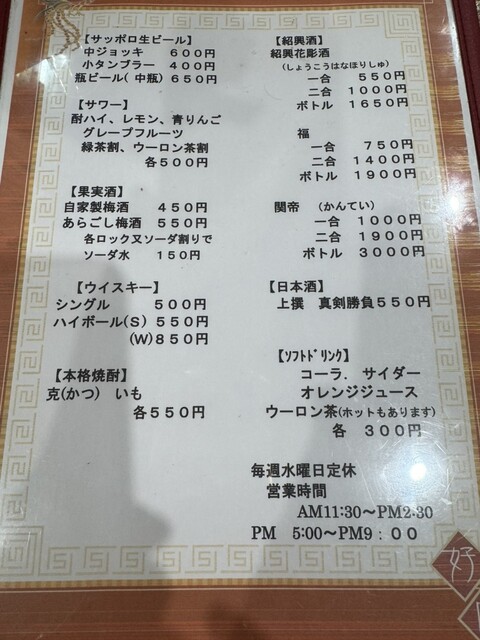 【サッポロ生ビール】
中ジョッキ　６００円
小タンブラー　４００円
瓶ビール( 中瓶) ６５０円
【サワー】
酎ハイ、レモン、青りんご
グレープフルーツ
緑茶割、ウーロン茶割
各５００円
【果実酒】
自家製梅酒　４５０円
あらごし梅酒　５５０円
各ロック又ソーダ割りで
ソーダ水　１５０円
【ウイスキー】
シングル　５００円
ハイボール(S) ５５０円
(W)８５０円
【本格焼酎】
克(かつ)　いも
各５５０円
【紹興酒】
紹興花彫酒
(しょうこうはなほりしゅ)
一合　５５０円
二合　１０００円
ボトル　１６５０円
福
一合　７５０円
二合　１４００円
ボトル　１９００円
関帝　(かんてい)
一合　１０００円
二合　１９００円
ボトル　３０００円
【日本酒】
上撰　真剣勝負５５０円
【ｿﾌﾄﾄﾞﾘﾝｸ】
コーラ．サイダー
オレンジジュース
ウーロン茶(ホットもあります)
各　３００円
毎週水曜日定休
営業時間
AM11:30～PM2:30
PM　5:00～PM9：００
好